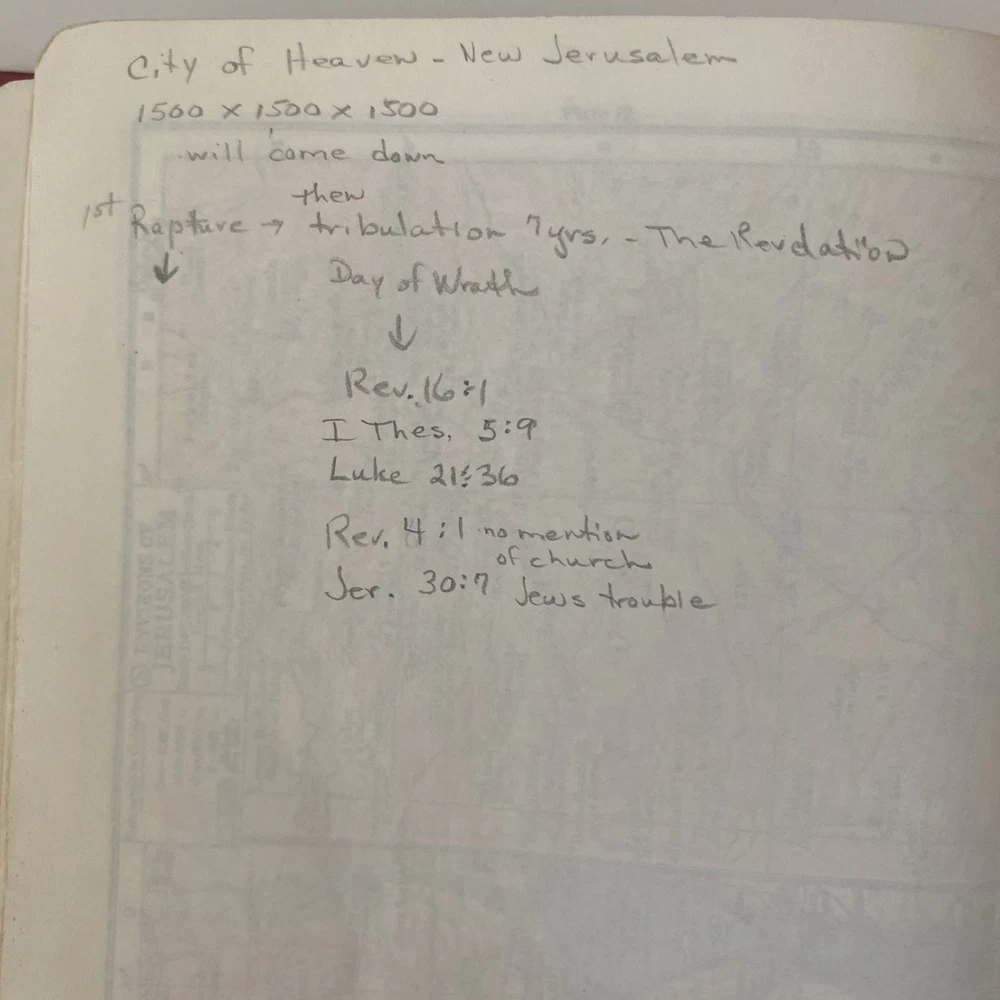 City of Heaven - New Jerusalem
1500 x 1500 x 1500
will come down
then
1st Rapture → tribulation 7yrs. - The Revelation
↓ Day of Wrath
↓
Rev. 16:1
I Thes. 5:9
Luke 21:36
Rev. 4:1 no mention
of church
Jer. 30:7 Jews trouble
JERUSALEM